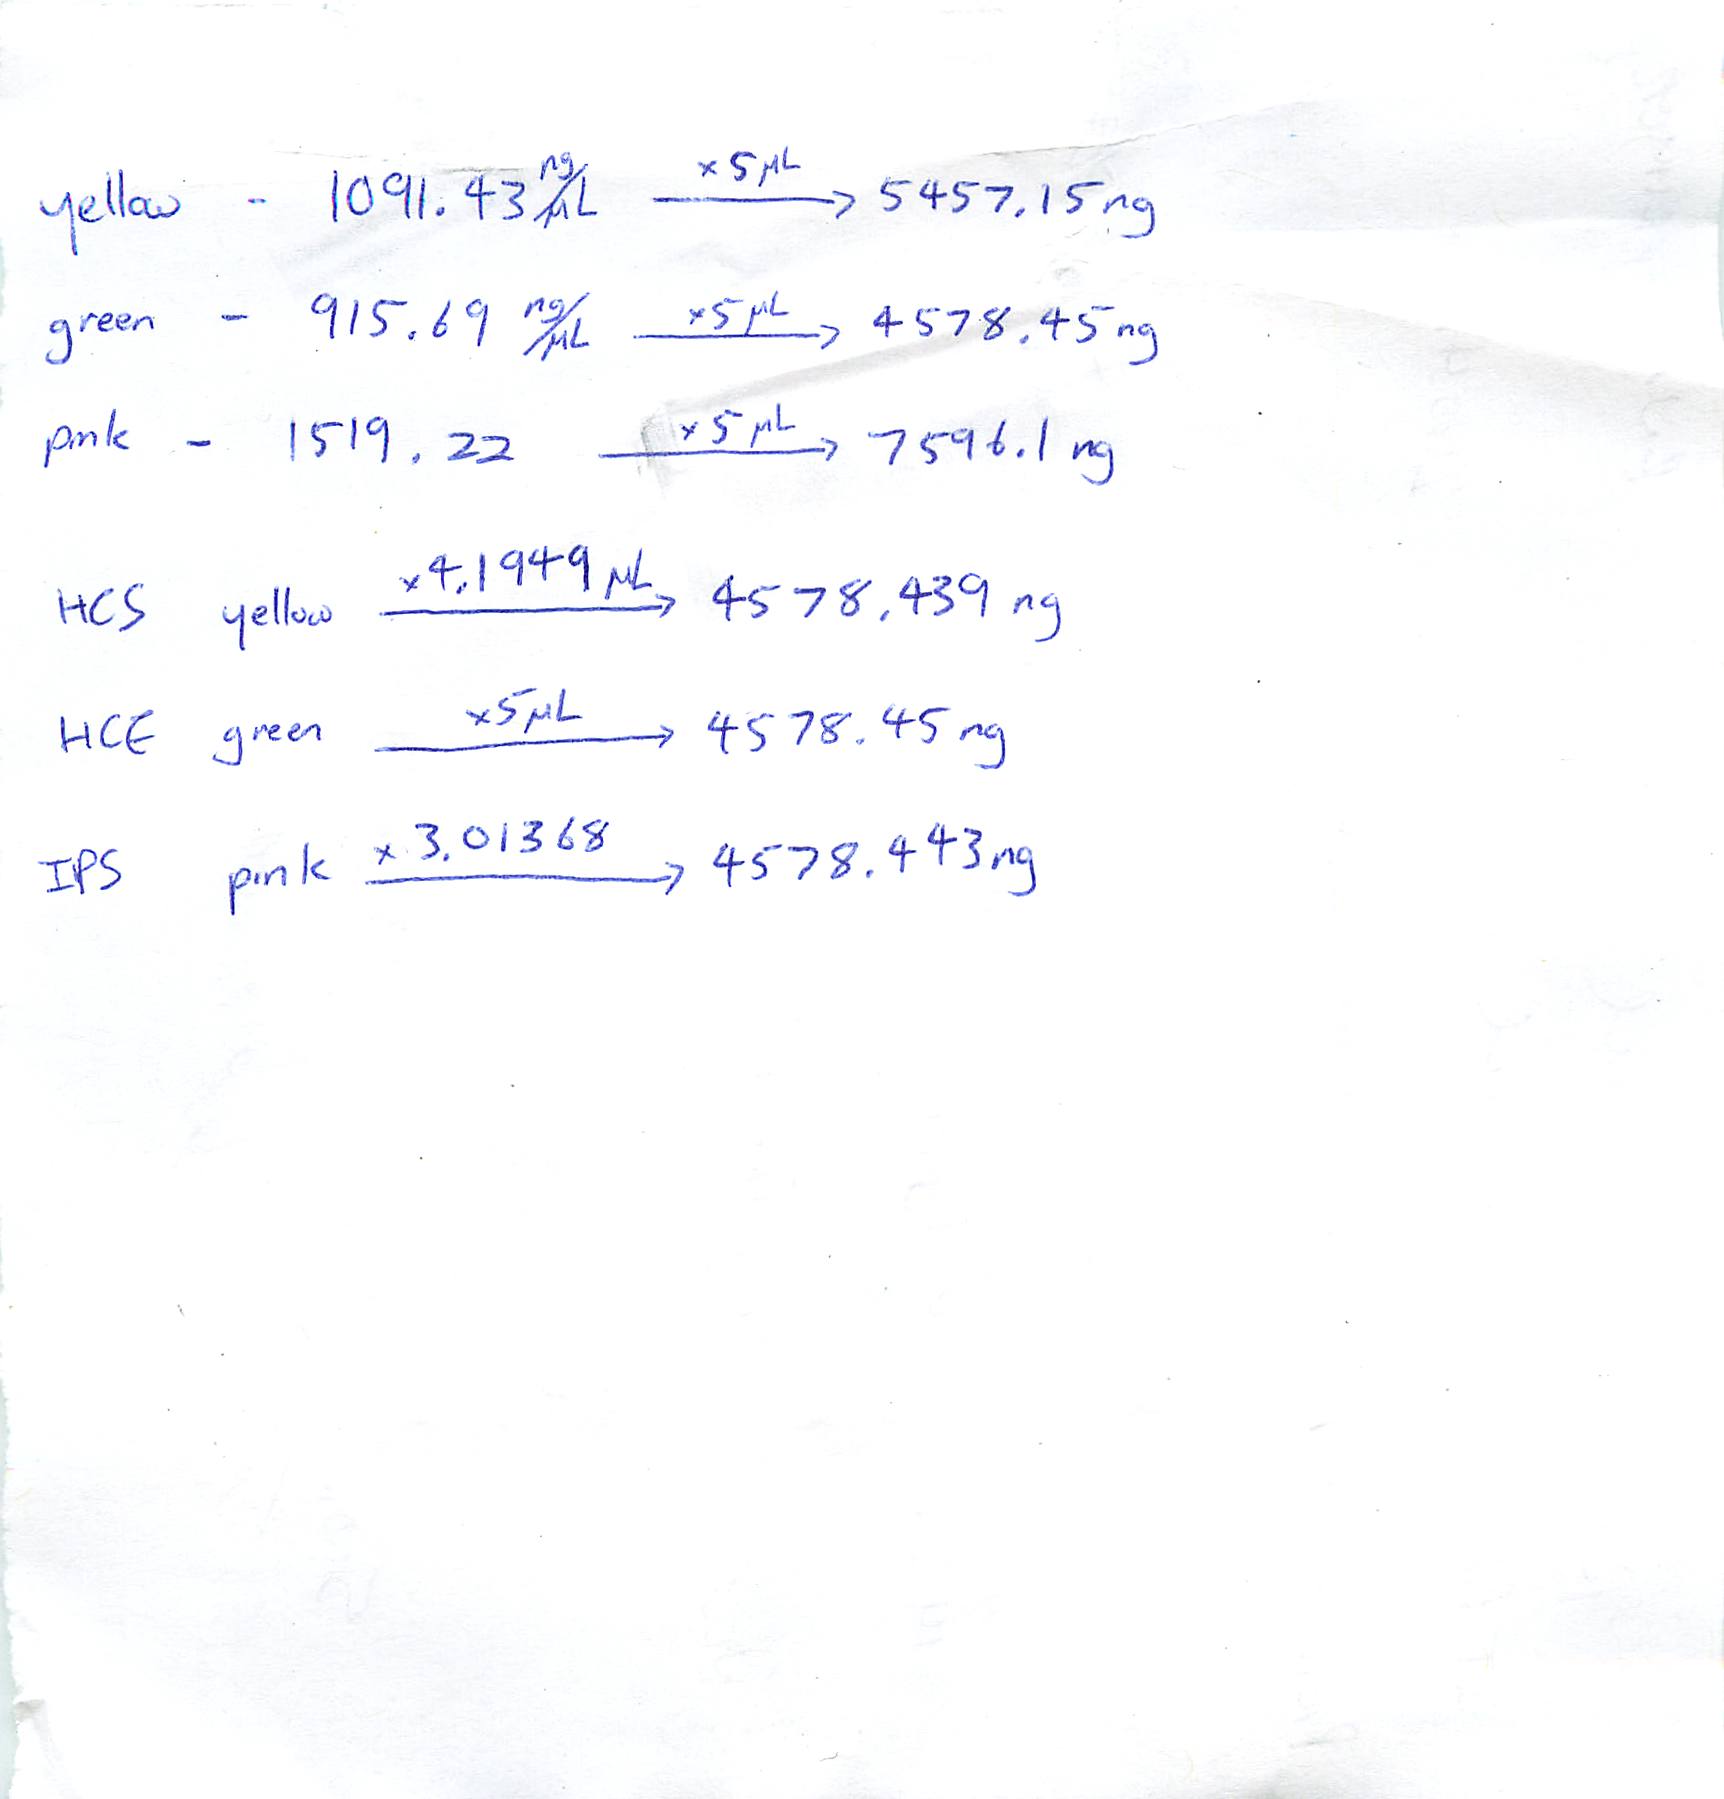 yellow - 1091.43 ng/μL ×5 μL → 5457.15 ng
green - 915.69 ng/μL ×5 μL → 4578.45 ng
pink - 1519.22 ×5 μL → 7596.1 ng
HCS yellow ×4.1949 μL → 4578.439 ng
HCE green ×5 μL → 4578.45 ng
IPS pink × 3.01368 → 4578.443 ng